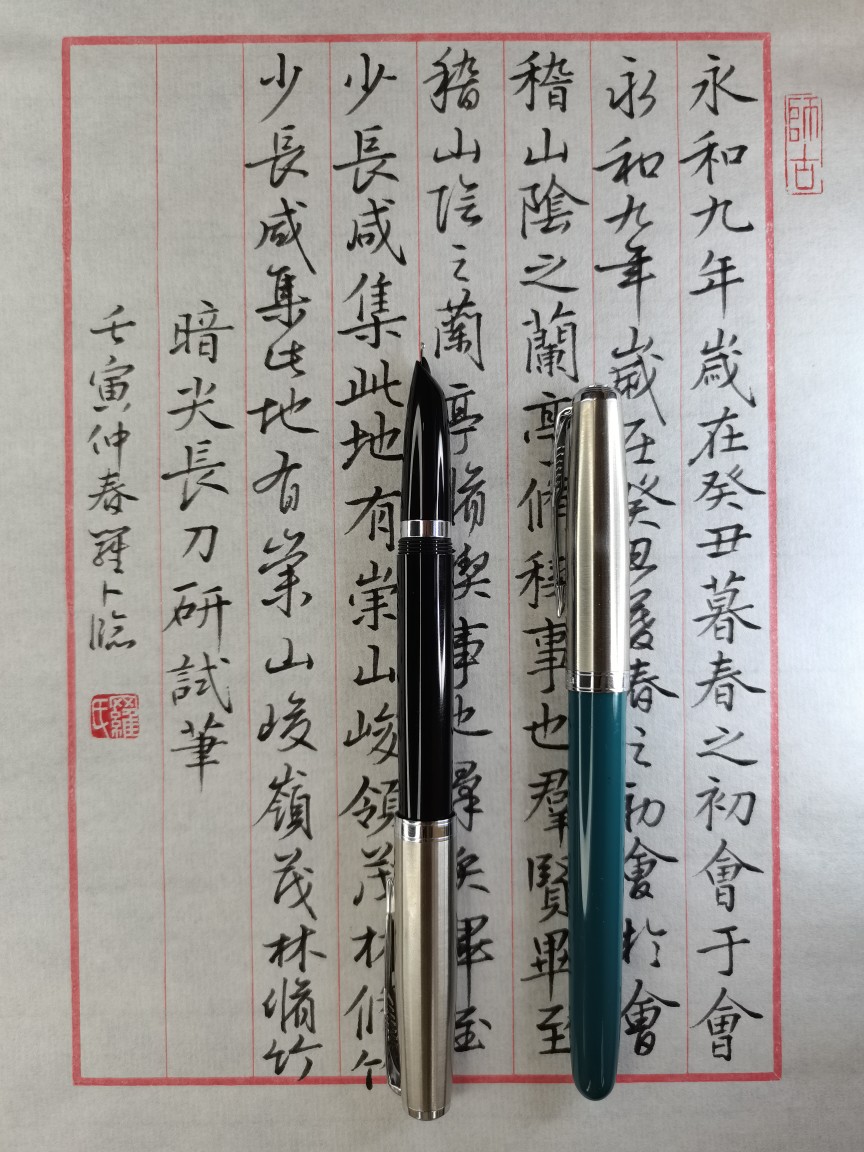 師古
永和九年歲在癸丑暮春之初會于會
永和九年歲在癸丑暮春之初會於會
稽山陰之蘭亭脩稧事也羣賢畢至
稽山陰之蘭亭脩禊事也羣賢畢至
少長咸集此地有崇山峻領茂林脩竹
少長咸集此地有崇山峻嶺茂林脩竹
暗尖長刀研試筆
壬寅仲春羅卜臨
羅氏